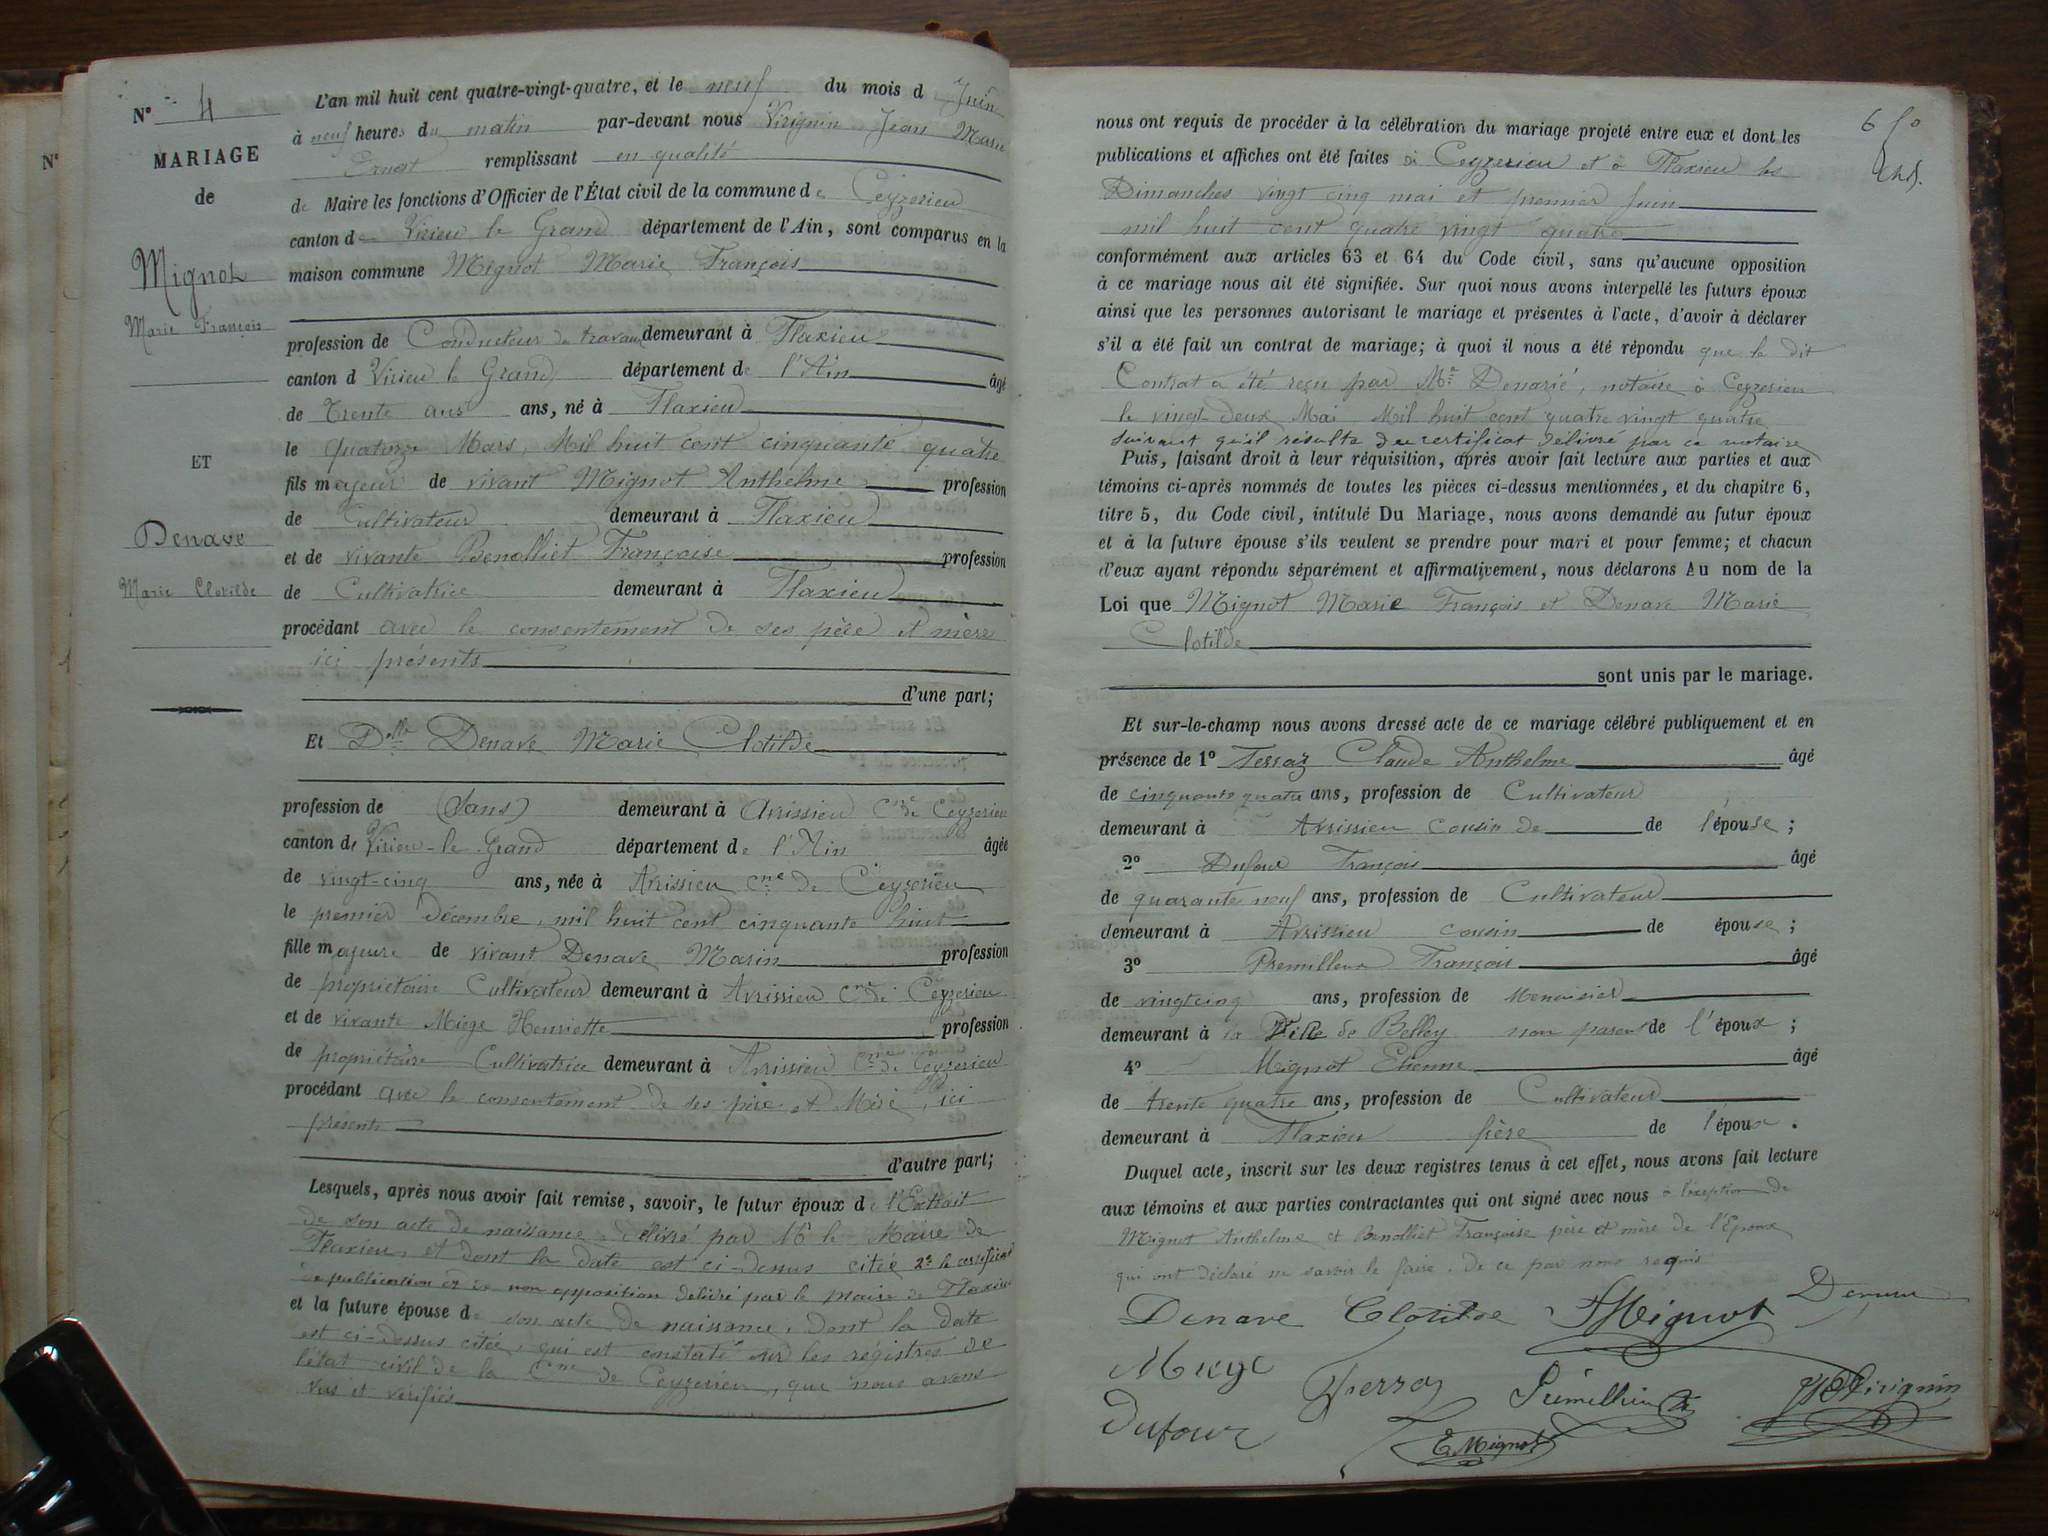 N° 4
MARIAGE
de
Mignot
Marie François
ET
Denave
Marie Clotilde
N°
L'an mil huit cent quatre-vingt-quatre, et le neuf du mois d Juin
à neuf heures du matin par-devant nous Virignin Jean Marie
Ernest remplissant en qualité
de Maire les fonctions d'Officier de l'État civil de la commune de Ceyzerieu
canton de Virieu le Grand département de l'Ain, sont comparus en la
maison commune Mignot Marie François
profession de Conducteur de travaux demeurant à Flaxieu
canton d Virieu le Grand département de l'Ain âgé
de Trente ans ans, né à Flaxieu
le quatorze Mars, Mil huit cent cinquante quatre
fils majeur de vivant Mignot Anthelme profession
de Cultivateur demeurant à Flaxieu
et de vivante Benolliet Françoise profession
de Cultivatrice demeurant à Flaxieu
procédant avec le consentement de ses père et mère
ici présents
d'une part;
Et Delle Denave Marie Clotilde
profession de (Sans) demeurant à Avrissieu Cne de Ceyzerieu
canton de Virieu-le-Grand département de l'Ain âgée
de vingt-cinq ans, née à Avrissieu Cne de Ceyzerieu
le premier décembre, mil huit cent cinquante huit
fille majeure de vivant Denave Marin profession
de propriétaire Cultivateur demeurant à Avrissieu Cne de Ceyzerieu
et de vivante Miege Henriette profession
de propriétaire Cultivatrice demeurant à Avrissieu Cne de Ceyzerieu
procédant avec le consentement de ses père et Mère, ici
présents
d'autre part;
Lesquels, après nous avoir fait remise, savoir, le futur époux de l'Extrait
de son acte de naissance délivré par Mr le Maire de
Flaxieu, et dont la date est ci-dessus citée 2° le certificat
de publication et de non opposition délivré par le maire de Flaxieu
et la future épouse de son acte de naissance, dont la date
est ci-dessus citée, qui est constaté sur les régistres de
l'état civil de la Cne de Ceyzerieu, que nous avons
vus et verifiés
6
nous ont requis de procéder à la célébration du mariage projeté entre eux et dont les
publications et affiches ont été faites à Ceyzerieu et à Flaxieu les
Dimanches vingt cinq mai et premier Juin
mil huit cent quatre vingt quatre
conformément aux articles 63 et 64 du Code civil, sans qu'aucune opposition
à ce mariage nous ait été signifiée. Sur quoi nous avons interpellé les futurs époux
ainsi que les personnes autorisant le mariage et présentes à l'acte, d'avoir à déclarer
s'il a été fait un contrat de mariage; à quoi il nous a été répondu que le dit
Contrat a été reçu par Me Denarié, notaire à Ceyzerieu
le vingt deux Mai Mil huit cent quatre vingt quatre
suivant qu'il résulte du certificat délivré par ce notaire
Puis, faisant droit à leur réquisition, après avoir fait lecture aux parties et aux
témoins ci-après nommés de toutes les pièces ci-dessus mentionnées, et du chapitre 6,
titre 5, du Code civil, intitulé Du Mariage, nous avons demandé au futur époux
et à la future épouse s'ils veulent se prendre pour mari et pour femme; et chacun
d'eux ayant répondu séparément et affirmativement, nous déclarons Au nom de la
Loi que Mignot Marie François et Denave Marie
Clotilde
sont unis par le mariage.
Et sur-le-champ nous avons dressé acte de ce mariage célébré publiquement et en
présence de 1° Terraz Claude Anthelme âgé
de cinquante quatre ans, profession de Cultivateur
demeurant à Avrissieu cousin de de l'épouse;
2° Dufour François âgé
de quarante neuf ans, profession de Cultivateur
demeurant à Avrissieu cousin de épouse;
3° Premilleux François âgé
de vingt cinq ans, profession de Menuisier
demeurant à la Ville de Belley non parent de l'époux;
4° Mignot Etienne âgé
de trente quatre ans, profession de Cultivateur
demeurant à Flaxieu frère de l'époux.
Duquel acte, inscrit sur les deux registres tenus à cet effet, nous avons fait lecture
aux témoins et aux parties contractantes qui ont signé avec nous à l'exception de
Mignot Anthelme et Benolliet Françoise père et mère de l'Epoux
qui ont déclaré ne savoir le faire. De ce par nous requis
Denave Clotilde FMignot Denave
Miege Terraz
Dufour E Mignot Virignin